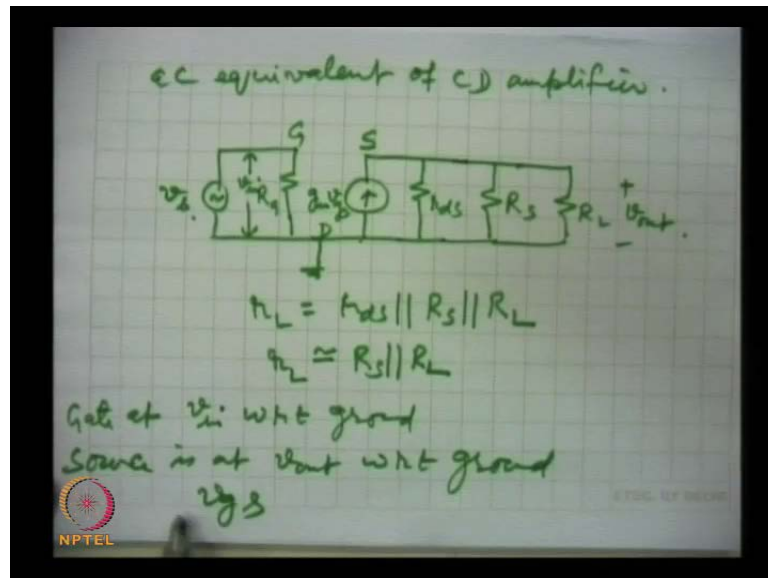 ac equivalent of CD amplifier.
G S
vs. vi RG gmvgs rds RS RL + vout. -
D
rL = rds || RS || RL
rL ≅ RS || RL
Gate at vi wrt ground
Source is at vout wrt ground
vgs
NPTEL